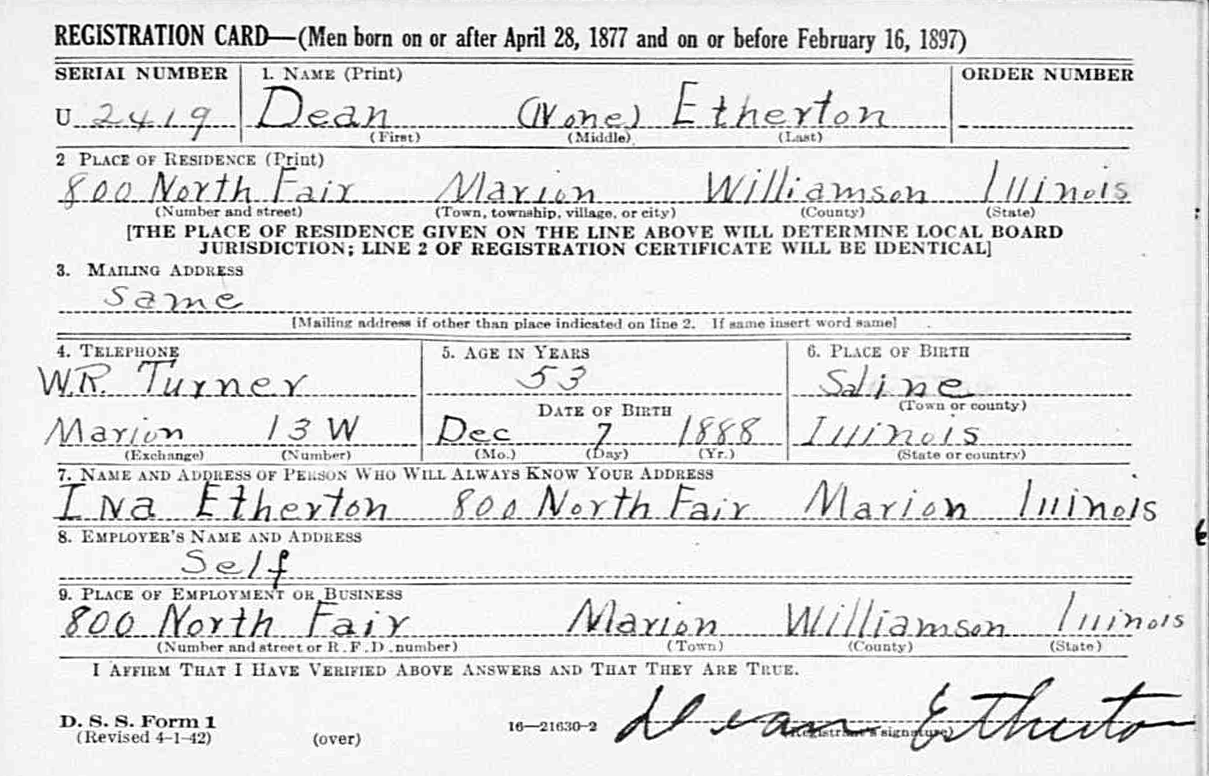 REGISTRATION CARD—(Men born on or after April 28, 1877 and on or before February 16, 1897)
SERIAL NUMBER 1. NAME (Print) ORDER NUMBER
U 2419 Dean (None) Etherton
(First) (Middle) (Last)
2 PLACE OF RESIDENCE (Print)
800 North Fair Marion Williamson Illinois
(Number and street) (Town, township, village, or city) (County) (State)
[THE PLACE OF RESIDENCE GIVEN ON THE LINE ABOVE WILL DETERMINE LOCAL BOARD
JURISDICTION; LINE 2 OF REGISTRATION CERTIFICATE WILL BE IDENTICAL]
3. MAILING ADDRESS
Same
[Mailing address if other than place indicated on line 2. If same insert word same]
4. TELEPHONE 5. AGE IN YEARS 6. PLACE OF BIRTH
W.R. Turner 53 Saline
DATE OF BIRTH (Town or county)
Marion 13 W Dec 7 1888 Illinois
(Exchange) (Number) (Mo.) (Day) (Yr.) (State or country)
7. NAME AND ADDRESS OF PERSON WHO WILL ALWAYS KNOW YOUR ADDRESS
Iva Etherton 800 North Fair Marion Illinois
8. EMPLOYER'S NAME AND ADDRESS
Self
9. PLACE OF EMPLOYMENT OR BUSINESS
800 North Fair Marion Williamson Illinois
(Number and street or R. F. D. number) (Town) (County) (State)
I AFFIRM THAT I HAVE VERIFIED ABOVE ANSWERS AND THAT THEY ARE TRUE.
Dean Etherton
D. S. S. Form 1 16—21630-2 (Registrant's signature)
(Revised 4-1-42) (over)